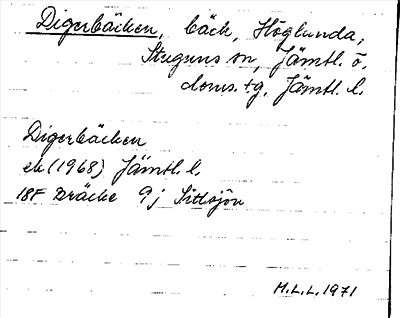 Digerbäcken, bäck, Höglunda,
Stuguns sn, Jämtl. ö.
doms. tg. Jämtl. l.
Digerbäcken
ek (1968) Jämtl. l.
18F Bräcke 9j Sittsjön
M.L.L. 1971